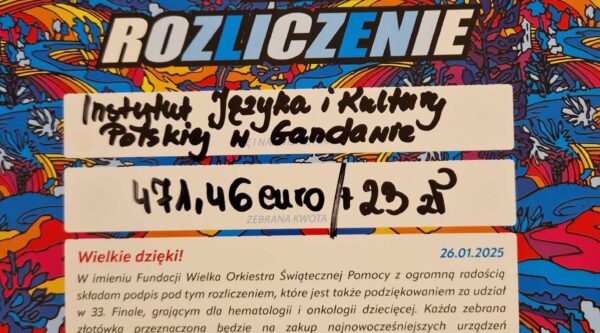 ROZLICZENIE
Instytut Języka i Kultury
Polskiej w Gandawie
471,46 euro / + 23 zł
ZEBRANA KWOTA
Wielkie dzięki! 26.01.2025
W imieniu Fundacji Wielka Orkiestra Świątecznej Pomocy z ogromną radością
składam podpis pod tym rozliczeniem, które jest także podziękowaniem za udział
w 33. Finale, grającym dla hematologii i onkologii dziecięcej. Każda zebrana
złotówka przeznaczona będzie na zakup najnowocześniejszych urządzeń